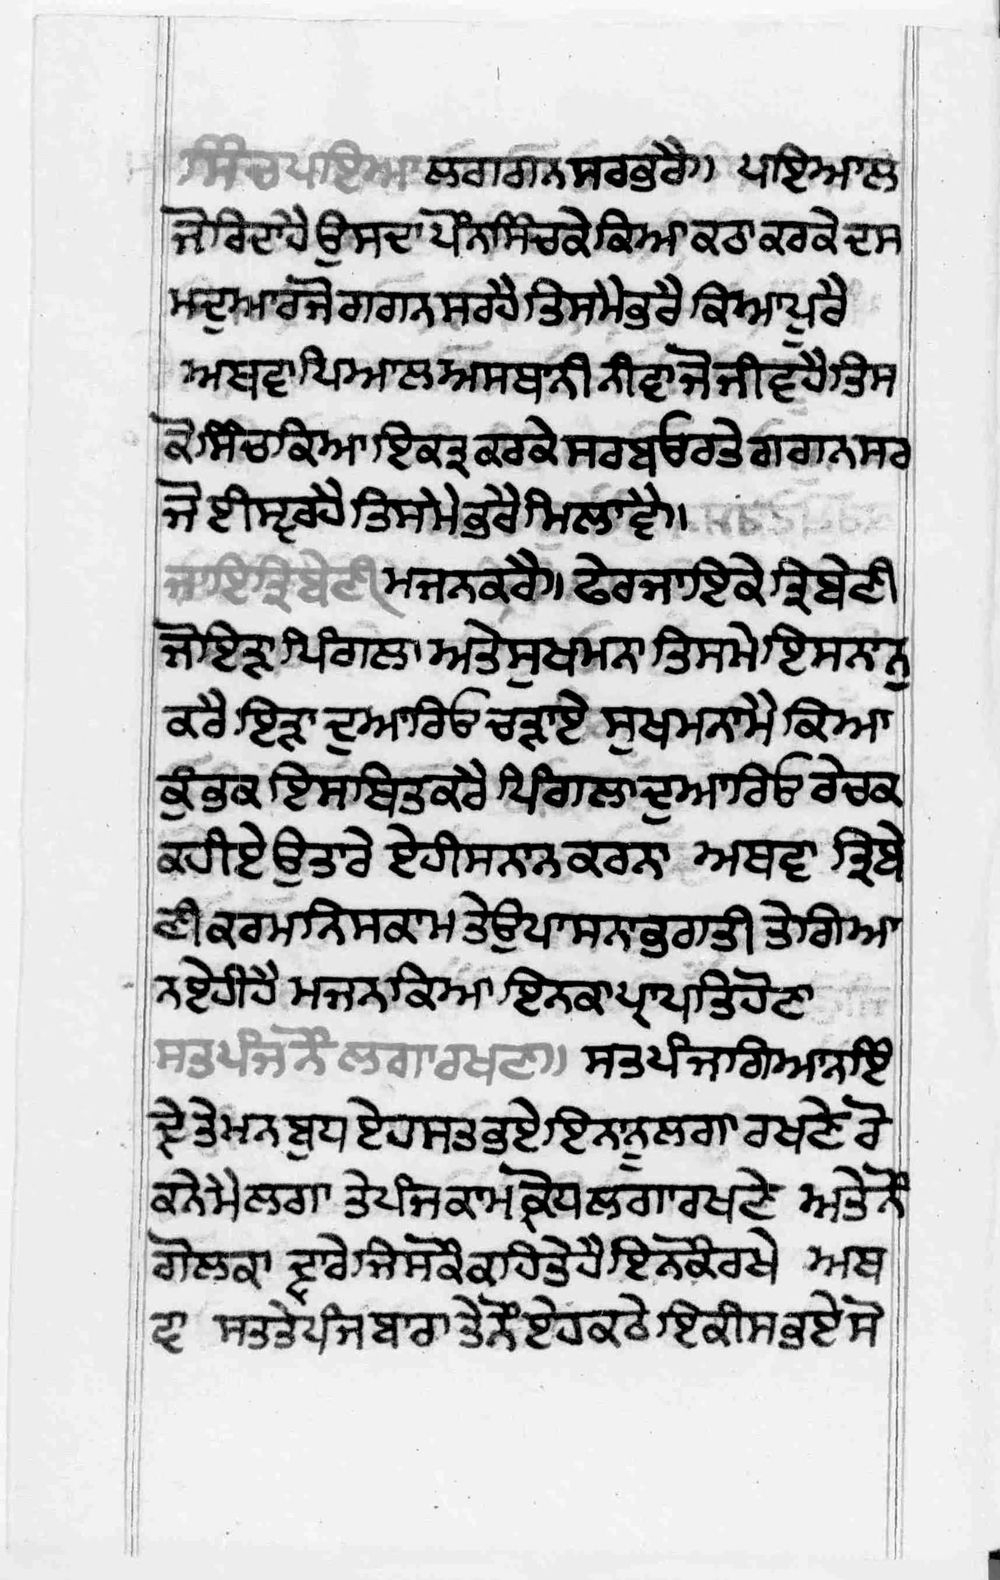 ਸਿੰਚ ਪਾਇਆਲ ਗਗਨ ਸਰ ਭਰੈ॥ ਪਾਇਆਲ
ਜੋ ਰਿਦਾ ਹੈ ਉਸ ਦਾ ਪੌਨ ਸਿੰਚ ਕੇ ਕਿਆ ਕਠਾ ਕਰਕੇ ਦਸ
ਮ ਦੁਆਰ ਜੋ ਗਗਨ ਸਰ ਹੈ ਤਿਸ ਮੈ ਭਰੈ ਕਿਆ ਪੂਰੈ
ਅਥਵਾ ਪਿਆਲ ਅਸਥਾਨੀ ਨੀਵਾ ਜੋ ਜੀਵ ਹੈ ਤਿਸ
ਕੋ ਸਿੰਚ ਕਿਆ ਇਕਤ੍ਰ ਕਰਕੇ ਸਰਬ ਓਰ ਤੇ ਗਗਨ ਸਰ
ਜੋ ਈਸ੍ਵਰ ਹੈ ਤਿਸ ਮੇ ਭਰੈ ਮਿਲਾਵੈ॥
ਜਾਇ ਤ੍ਰਿਬੇਣੀ ਮਜਨ ਕਰੈ॥ ਫੇਰ ਜਾਇਕੇ ਤ੍ਰਿਬੇਣੀ
ਜੋ ਇੜਾ ਪਿੰਗਲਾ ਅਤੇ ਸੁਖਮਨਾ ਤਿਸ ਮੇ ਇਸਨਾਨੁ
ਕਰੈ ਇੜਾ ਦੁਆਰਿਓ ਚੜਾਏ ਸੁਖਮਨਾ ਮੈ ਕਿਆ
ਕੁੰਭਕ ਇਸਥਿਤ ਕਰੈ ਪਿੰਗਲਾ ਦੁਆਰਿਓ ਰੇਚਕ
ਕਹੀਏ ਉਤਾਰੇ ਏਹੀ ਸਨਾਨ ਕਰਨਾ ਅਥਵਾ ਤ੍ਰਿਬੇ
ਣੀ ਕਰਮ ਨਿਸਕਾਮ ਤੇ ਉਪਾਸਨਾ ਭਗਤੀ ਤੇ ਗਿਆ
ਨ ਏਹੀ ਹੈ ਮਜਨ ਕਿਆ ਇਨਕਾ ਪ੍ਰਾਪਤਿ ਹੋਣਾ
ਸਤ ਪੰਜ ਨੌ ਲਗਾ ਰਖਣਾ॥ ਸਤ ਪੰਜ ਗਿਆਨ ਇੰ
ਦ੍ਰੇ ਤੇ ਮਨ ਬੁਧ ਏਹ ਸਤ ਭਏ ਇਨ ਨੂ ਲਗਾ ਰਖਣੇ ਰੋ
ਕਨੇ ਮੈ ਲਗਾ ਤੇ ਪੰਜ ਕਾਮ ਕ੍ਰੋਧ ਲਗਾ ਰਖਣੇ ਅਤੇ ਨੌ
ਗੋਲਕਾ ਦ੍ਵਾਰੇ ਜਿਸ ਕੋ ਕਹਿਤੇ ਹੈ ਇਨ ਕੋ ਰਖੇ ਅਥ
ਵਾ ਸਤ ਤੇ ਪੰਜ ਬਾਰਾ ਤੇ ਨੌਂ ਏਹ ਕਠੇ ਇਕੀਸ ਭਏ ਸੋ